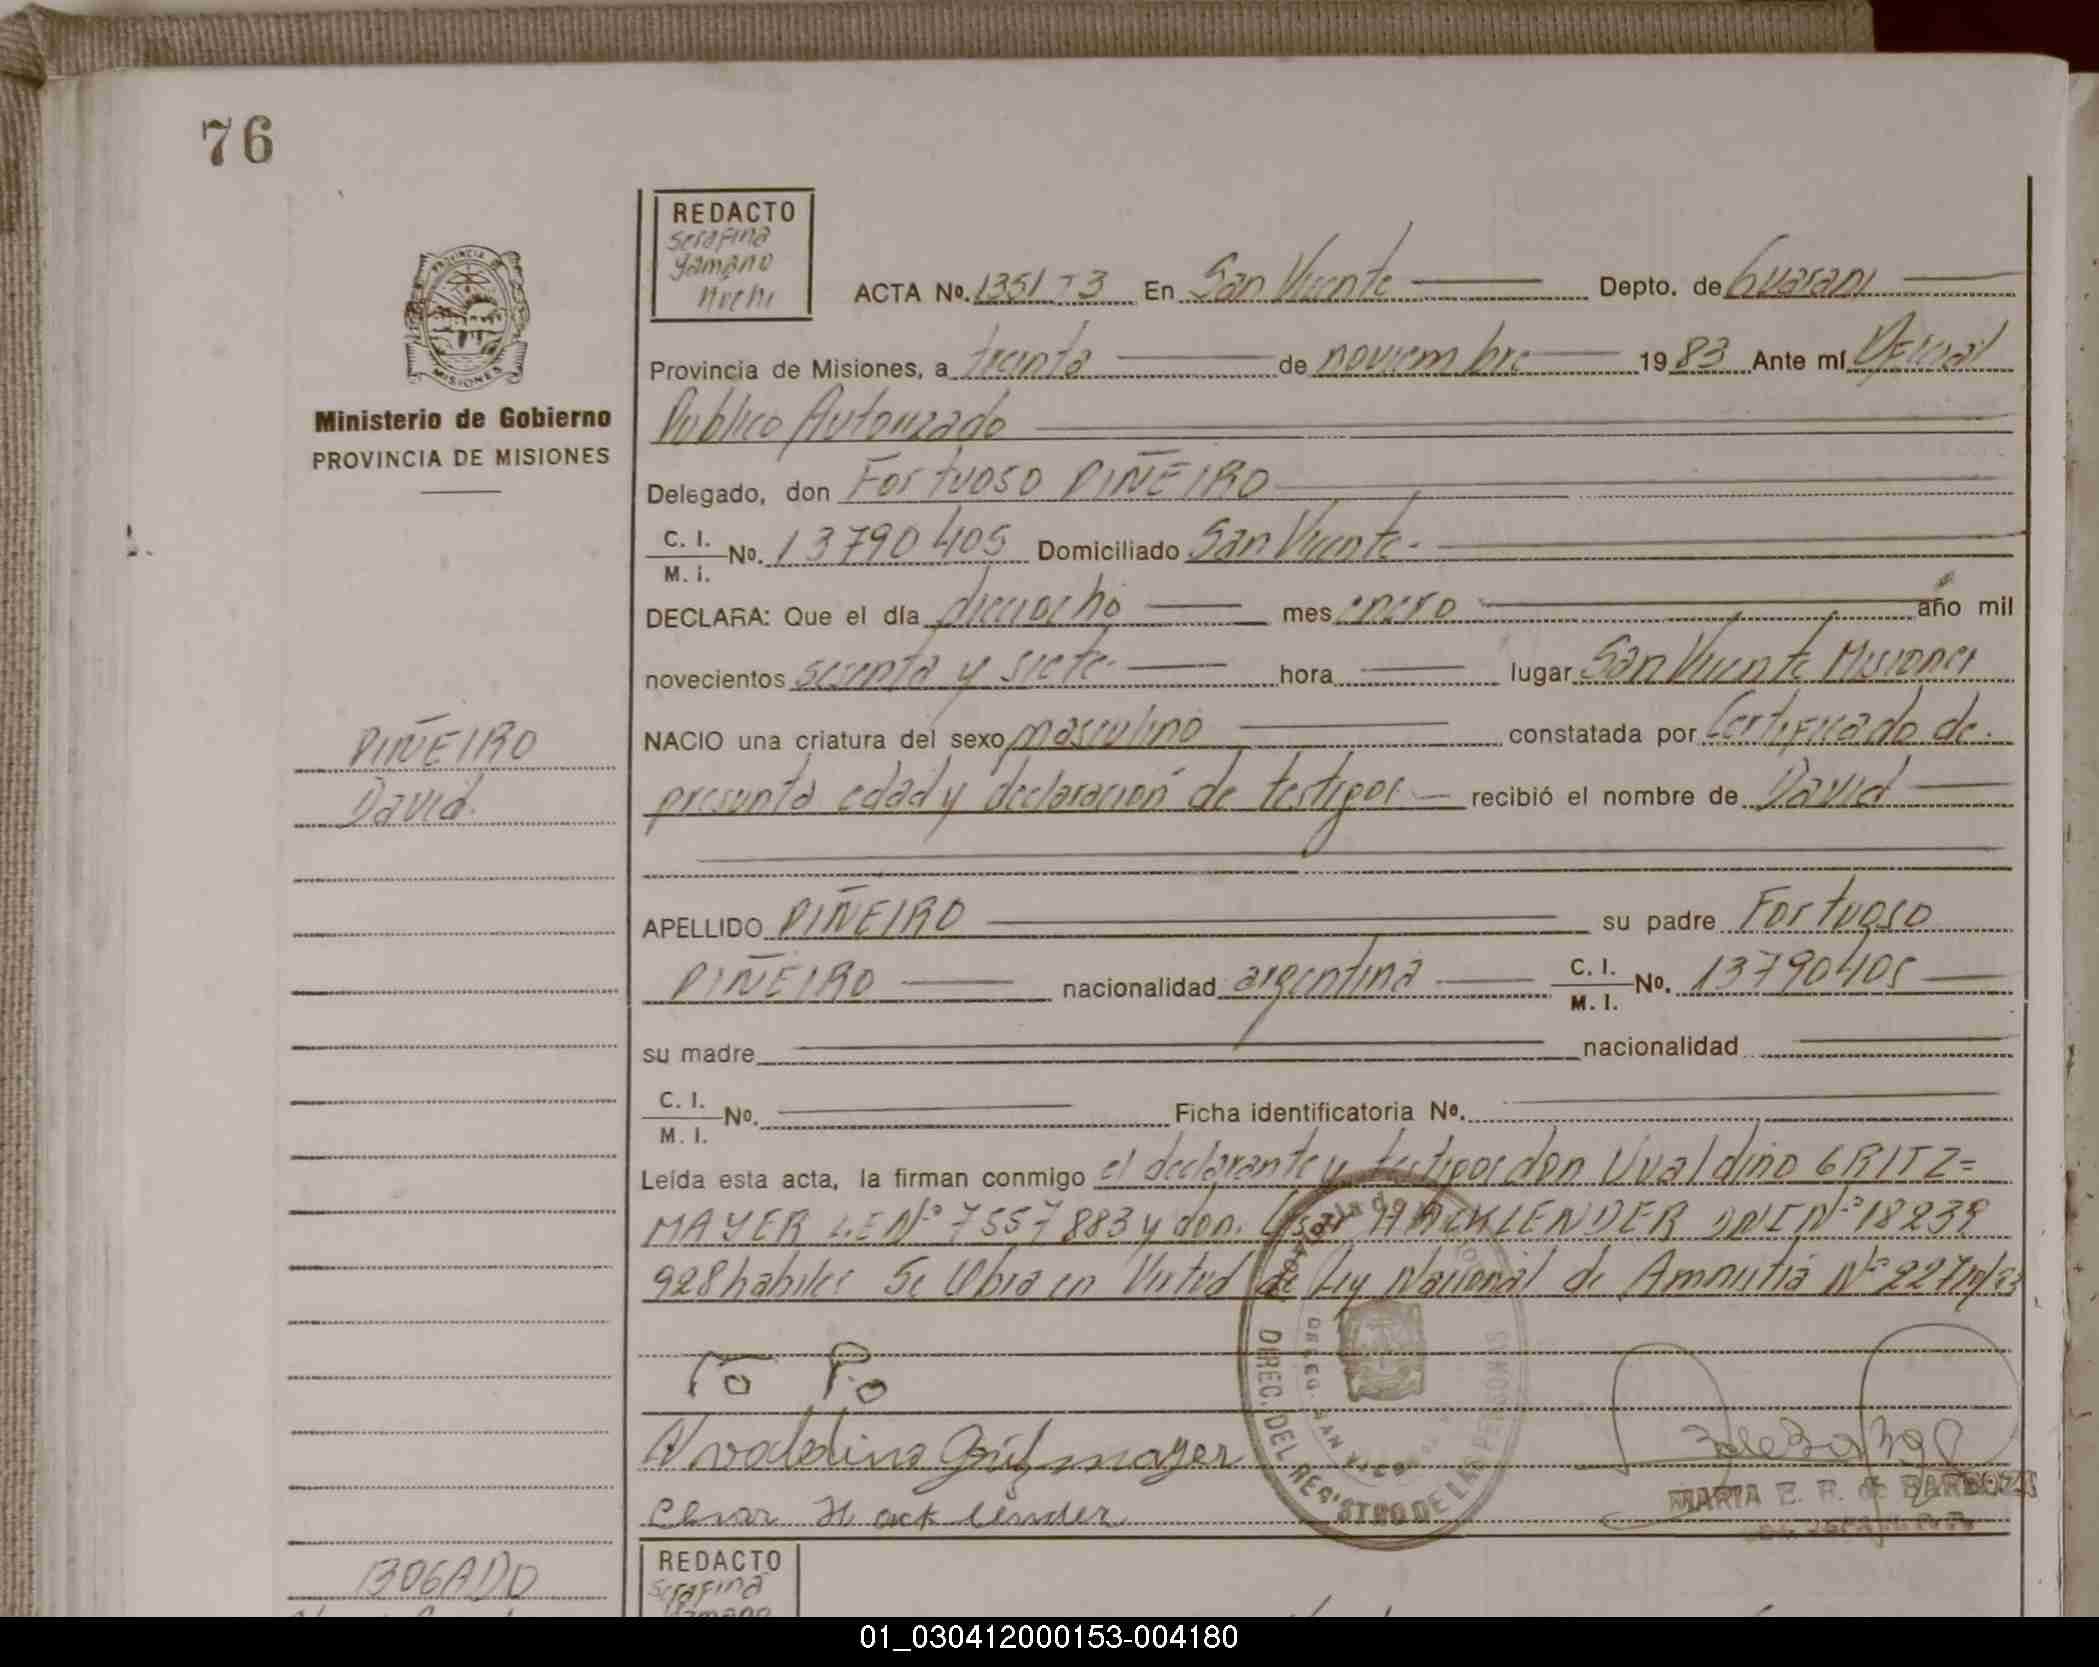 76
REDACTO
Serafina
Yamano
ACTA Nº. 1351 T 3 En San Vicente Depto. de Guarani
MISIONES
Ministerio de Gobierno
PROVINCIA DE MISIONES
Provincia de Misiones, a treinta de noviembre 1983 Ante mí Oficial
Publico Autorizado
Delegado, don Fortuoso PIÑEIRO
C. I.
M. I. Nº. 13790405 Domiciliado San Vicente.
DECLARA: Que el día dieciocho mes enero año mil
novecientos sesenta y siete. hora lugar San Vicente Misiones
PIÑEIRO
David.
NACIO una criatura del sexo masculino constatada por Certificado de.
presunta edad y declaración de testigos recibió el nombre de David
APELLIDO PIÑEIRO su padre Fortuoso
PIÑEIRO nacionalidad argentina C. I.
M. I. Nº. 13790405
su madre nacionalidad
C. I.
M. I. Nº. Ficha identificatoria Nº.
Leída esta acta, la firman conmigo el declarante y testigos don Uvaldino GRITZ=
MAYER L.E Nº 7557883 y don. Cesar HACKLENDER DNI Nº 18239
928 habiles Se Libra en Virtud de Ley Nacional de Amnistia Nº 22710/83
DIREC. DEL REGISTRO DE LAS PERSONAS
DELEG. SAN VICENTE
Cesar Hacklender
MARIA E. R. de BARBOZA
BOGADO
REDACTO
Serafina
Yamano
01_030412000153-004180